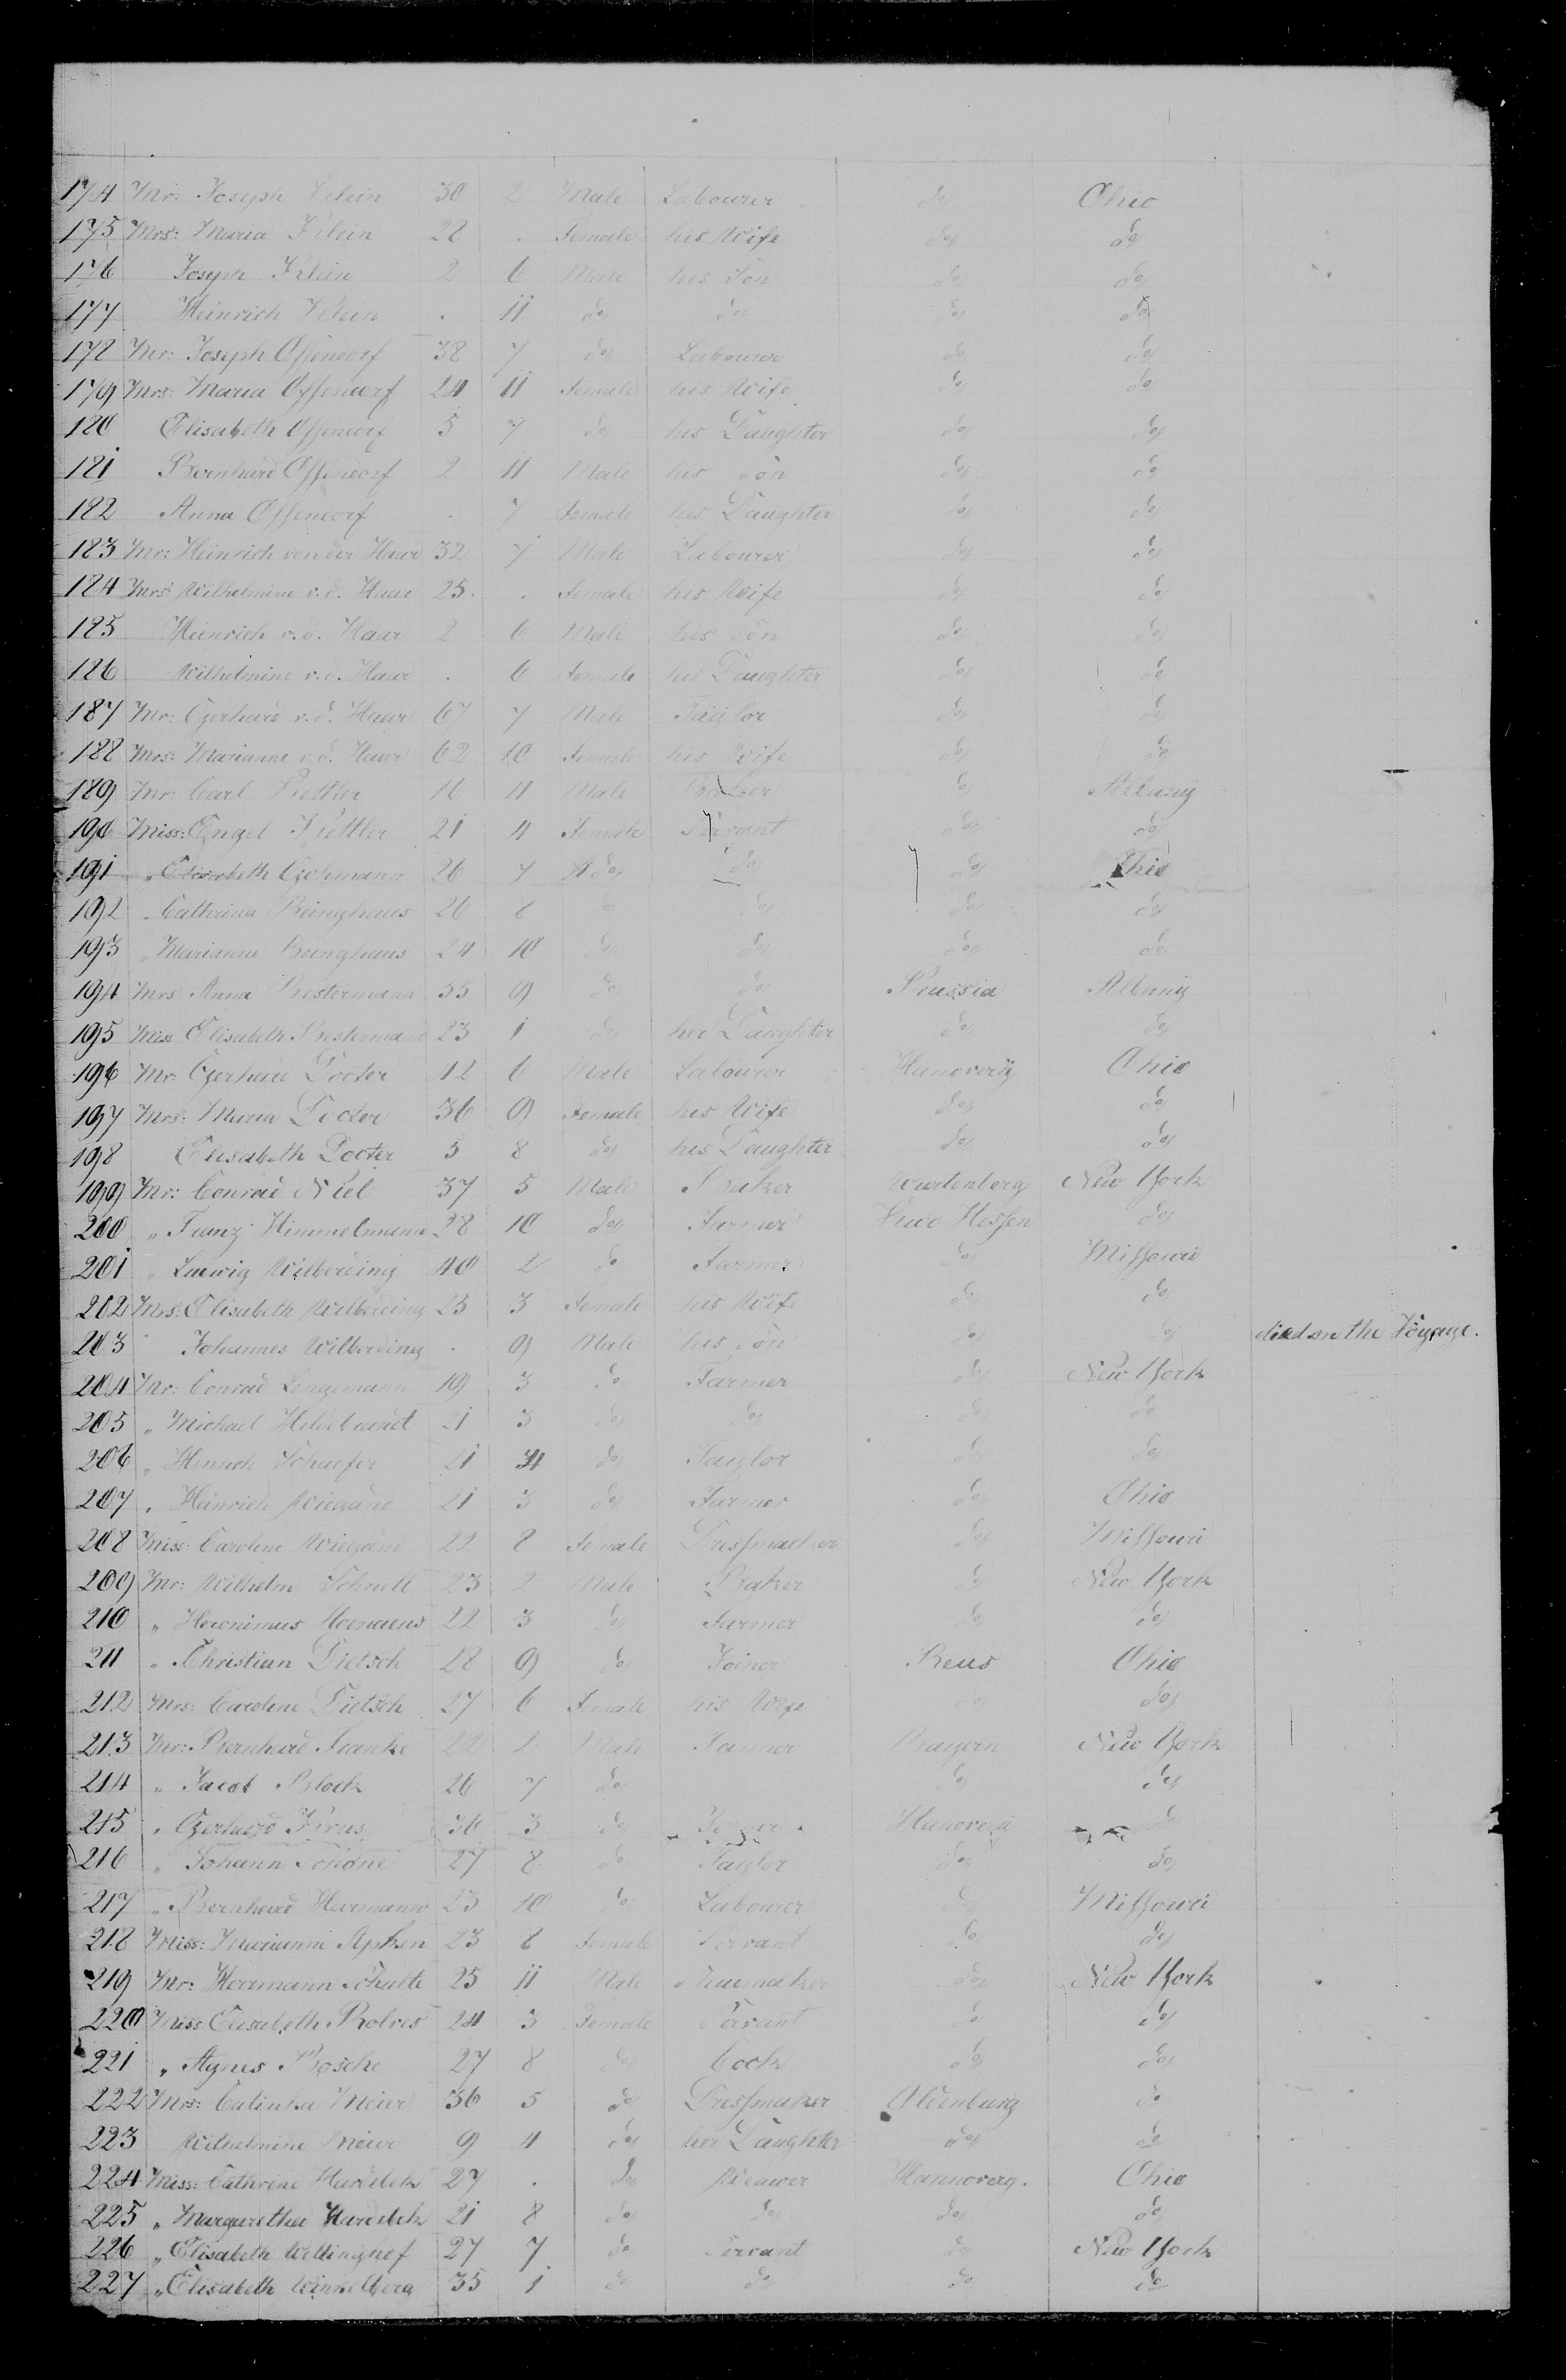 174 Mr: Joseph Klein 30 2 Male Labourer do Ohio
175 Mrs: Maria Klein 28 . Female his Wife do do
176 Joseph Klein 2 6 Male his Son do do
177 Heinrich Klein . 11 do do do do
178 Mr: Joseph Offendorf 38 7 do Labourer do do
179 Mrs: Maria Offendorf 24 11 Female his Wife do do
180 Elisabeth Offendorf 5 7 do his Daughter do do
181 Bernhard Offendorf 2 11 Male his Son do do
182 Anna Offendorf . 7 Female his Daughter do do
183 Mr: Heinrich von der Haar 32 7 Male Labourer do do
184 Mrs: Wilhelmine v. d. Haar 25 . Female his Wife do do
185 Heinrich v. d. Haar 2 6 Male his Son do do
186 Wilhelmine v. d. Haar . 6 Female his Daughter do do
187 Mr: Gerhard v. d. Haar 67 7 Male Taylor do do
188 Mrs: Marianne v. d. Haar 62 10 Female his Wife do do
189 Mr: Carl Kettler 16 11 Male do Albany
190 Miss: Engel Kettler 21 4 Female Servant do do
191 " Elisabeth Gohmann 26 7 do do do Ohio
192 " Cathrina Beinghaus 26 8 do do do do
193 " Marianne Beinghaus 24 10 do do do do
194 Mrs Anna Bestermann 55 9 do do Prussia Albany
195 Miss Elisabeth Bestermann 23 1 do her Daughter do do
196 Mr: Gerhard Docter 42 6 Male Labourer Hanovery Ohio
197 Mrs: Maria Docter 36 9 Female his Wife do do
198 Elisabeth Docter 5 8 do his Daughter do do
199 Mr: Conrad Niel 37 5 Male Baker Wurtenberg New York
200 " Franz Himmelmann 28 10 do Farmer Hessen do
201 " Ludwig Wilberding 40 2 do Farmer do Missouri
202 Mrs: Elisabeth Wilberding 23 3 Female his Wife do do
203 Johannes Wilberding . 9 Male his Son do do died on the Voyage.
204 Mr: Conrad Lengemann 19 3 do Farmer do New York
205 " Michael Hildebrandt 21 3 do do do do
206 " Heinrich Schaefer 21 do Taylor do do
207 " Heinrich Wiegand 21 3 do Farmer do Ohio
208 Miss: Caroline Wiegand 22 8 Female Dressmacker do Missouri
209 Mr: Wilhelm Schnell 23 2 Male Baker do New York
210 " Heronimus 22 3 do Farmer do do
211 " Christian Dietsch 28 9 do Joiner Reus Ohio
212 Mrs: Caroline Dietsch 27 6 Female his Wife do do
213 Mr: Bernhard Franke 22 2 Male Bayern New York
214 " Jacob Block 26 7 do do do
215 " Gerhard 36 3 do Hanovery do
216 " Johann Schöne 27 8 do Taylor do do
217 " Bernhard Herrmann 23 10 do Labourer do Missouri
218 Miss: Marianne Apken 23 8 Female Servant do do
219 Mr: Herrmann Schulte 25 11 Male Shumaker do New York
220 Miss: Elisabeth Rolves 24 3 Female Servant do do
221 " Agnes Bosche 27 8 do Cock do do
222 Mrs: Catinka Meier 36 5 do Dressmaker Oldenburg do
223 Wilhelmine Meier 9 4 do her Daughter do do
224 Miss: Cathrine Hardebek 27 . do Weawer Hannovery. Ohio
225 " Margaretha Hardebek 21 8 do do do do
226 " Elisabeth Wellinghof 27 7 do Servant do New York
227 " Elisabeth Winkelberg 35 1 do do do do